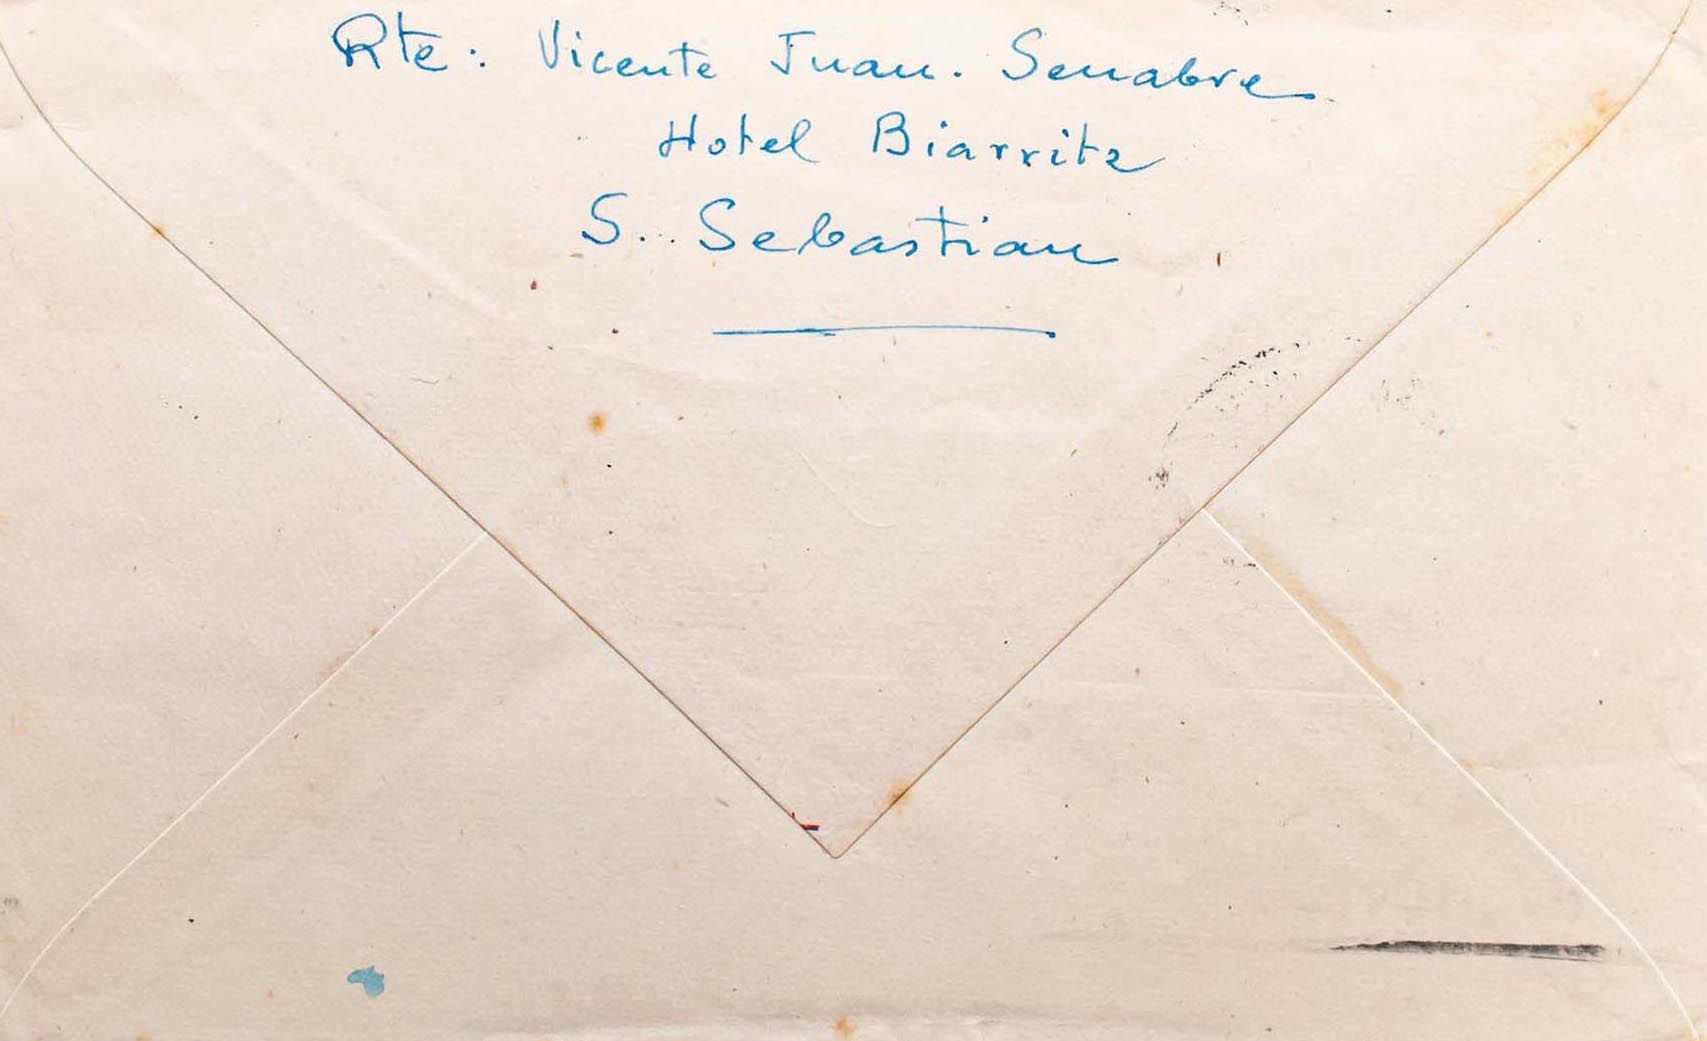 Rte: Vicente Juan. Senabre
Hotel Biarritz
S. Sebastian